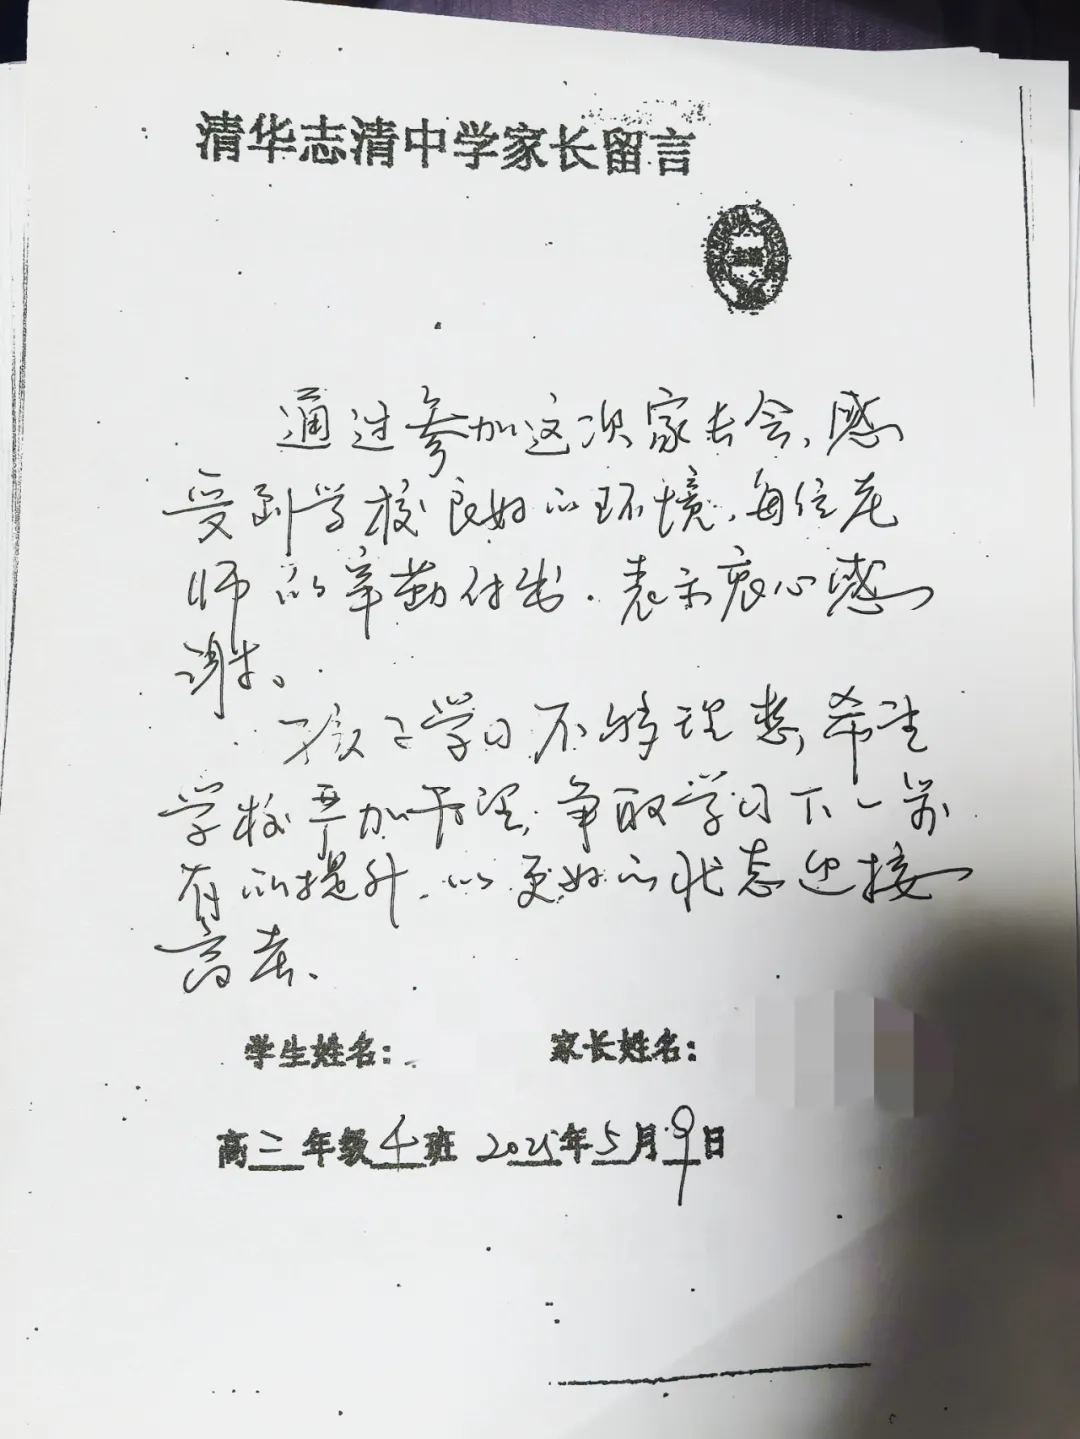 清华志清中学家长留言
通过参加这次家长会，感
受到学校良好的环境，每位老
师的辛勤付出，表示衷心感
谢。
孩子学习不够理想，希望
学校严加管理，争取学习下一步
有的提升，以更好的状态迎接
高考、
学生姓名： 家长姓名：
高三年级4班 2025年5月9日